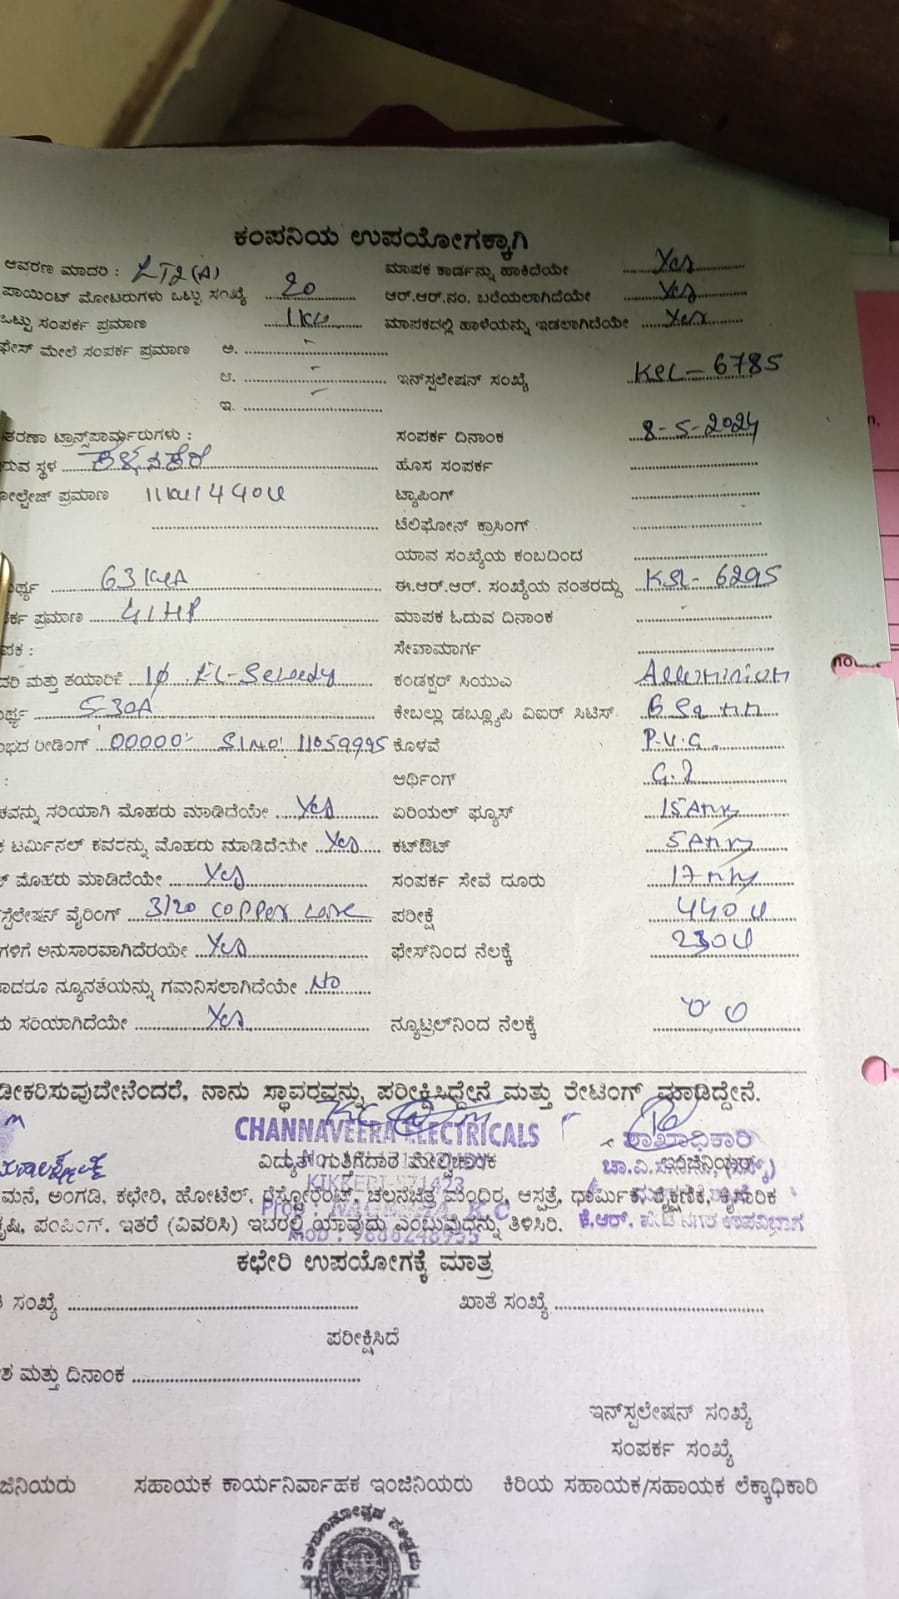 ಕಂಪನಿಯ ಉಪಯೋಗಕ್ಕಾಗಿ
ಆವರಣ ಮಾದರಿ : LT2(A) ಮಾಪಕ ಕಾರ್ಡನ್ನು ಹಾಕಿದೆಯೇ Yes
ಪಾಯಿಂಟ್ ಮೋಟರುಗಳು ಒಟ್ಟು ಸಂಖ್ಯೆ 20 ಆರ್.ಆರ್.ನಂ. ಬರೆಯಲಾಗಿದೆಯೇ Yes
ಒಟ್ಟು ಸಂಪರ್ಕ ಪ್ರಮಾಣ 1KW ಮಾಪಕದಲ್ಲಿ ಹಾಳೆಯನ್ನು ಇಡಲಾಗಿದೆಯೇ Yes
ಫೇಸ್ ಮೇಲೆ ಸಂಪರ್ಕ ಪ್ರಮಾಣ ಅ.
ಆ. ಇನ್‌ಸ್ಟಲೇಷನ್ ಸಂಖ್ಯೆ KSL-6785
ಇ.
ತರಣಾ ಟ್ರಾನ್ಸ್‌ಪಾರ್ಮ್ರರುಗಳು : ಸಂಪರ್ಕ ದಿನಾಂಕ 8-5-2024
ರುವ ಸ್ಥಳ ಹೊಸ ಸಂಪರ್ಕ
ೋಲ್ಟೇಜ್ ಪ್ರಮಾಣ 11KV/440V ಟ್ಯಾಪಿಂಗ್
ಟೆಲಿಫೋನ್ ಕ್ರಾಸಿಂಗ್
ಯಾವ ಸಂಖ್ಯೆಯ ಕಂಬದಿಂದ
ರ್ಥ್ಯ 63 KVA ಈ.ಆರ್.ಆರ್. ಸಂಖ್ಯೆಯ ನಂತರದ್ದು KSL-6295
ರ್ಕ ಪ್ರಮಾಣ 41HP ಮಾಪಕ ಓದುವ ದಿನಾಂಕ
ಪಕ : ಸೇವಾಮಾರ್ಗ
ದರಿ ಮತ್ತು ತಯಾರಿಕೆ 1ϕ ಕಂಡಕ್ಟರ್ ಸಿಯುಎ Alluminium
ರ್ಥ್ಯ 5-30A ಕೇಬಲ್ಲು ಡಬ್ಲ್ಯೂಪಿ ವಿಐರ್ ಸಿಟಿಸ್ 6 Sq mm
ಭದ ರೀಡಿಂಗ್ 00000 Sl No 11059995 ಕೊಳವೆ P.V.C.
: ಆರ್ಥಿಂಗ್ G.I
ಕವನ್ನು ಸರಿಯಾಗಿ ಮೊಹರು ಮಾಡಿದೆಯೇ Yes ಏರಿಯಲ್ ಫ್ಯೂಸ್ 15Amp
ಕ ಟರ್ಮಿನಲ್ ಕವರನ್ನು ಮೊಹರು ಮಾಡಿದೆಯೇ Yes ಕಟ್‌ಔಟ್ 5Amp
ಕ್ ಮೊಹರು ಮಾಡಿದೆಯೇ Yes ಸಂಪರ್ಕ ಸೇವೆ ದೂರು 17
ಸ್ಟಲೇಷನ್ ವೈರಿಂಗ್ 3/20 copper ಪರೀಕ್ಷೆ 440V
ಗಳಿಗೆ ಅನುಸಾರವಾಗಿದೆರಯೇ Yes ಫೇಸ್‌ನಿಂದ ನೆಲಕ್ಕೆ 230V
ಾದರೂ ನ್ಯೂನತೆಯನ್ನು ಗಮನಿಸಲಾಗಿದೆಯೇ No
ು ಸರಿಯಾಗಿದೆಯೇ Yes ನ್ಯೂಟ್ರಲ್‌ನಿಂದ ನೆಲಕ್ಕೆ
ಡೀಕರಿಸುವುದೇನೆಂದರೆ, ನಾನು ಸ್ಥಾವರವನ್ನು ಪರೀಕ್ಷಿಸಿದ್ದೇನೆ ಮತ್ತು ರೇಟಿಂಗ್ ಮಾಡಿದ್ದೇನೆ.
CHANNAVEERA ELECTRICALS ಶಾಖಾಧಿಕಾರಿ
ವಿದ್ಯುತ್ ಗುತ್ತಿಗೆದಾರ ಮೇಲ್ವಿಚಾರಕ ಇಂಜಿನಿಯರ್
KIKKERI-571423
ಮನೆ, ಅಂಗಡಿ, ಕಛೇರಿ, ಹೋಟೆಲ್, ರೆಸ್ಟೋರೆಂಟ್, ಚಲನಚಿತ್ರ ಮಂದಿರ, ಆಸ್ಪತ್ರೆ, ಧಾರ್ಮಿಕ, ಶೈಕ್ಷಣಿಕ, ಕೈಗಾರಿಕ
ೃಷಿ, ಪಂಪಿಂಗ್. ಇತರೆ (ವಿವರಿಸಿ) ಇವರಲ್ಲಿ ಯಾವುದು ಎಂಬುವುದನ್ನು ತಿಳಿಸಿರಿ.
ಕಛೇರಿ ಉಪಯೋಗಕ್ಕೆ ಮಾತ್ರ
ಸಂಖ್ಯೆ ಖಾತೆ ಸಂಖ್ಯೆ
ಪರೀಕ್ಷಿಸಿದೆ
ಶ ಮತ್ತು ದಿನಾಂಕ
ಇನ್‌ಸ್ಟಲೇಷನ್ ಸಂಖ್ಯೆ
ಸಂಪರ್ಕ ಸಂಖ್ಯೆ
ಜಿನಿಯರು ಸಹಾಯಕ ಕಾರ್ಯನಿರ್ವಾಹಕ ಇಂಜಿನಿಯರು ಕಿರಿಯ ಸಹಾಯಕ/ಸಹಾಯಕ ಲೆಕ್ಕಾಧಿಕಾರಿ